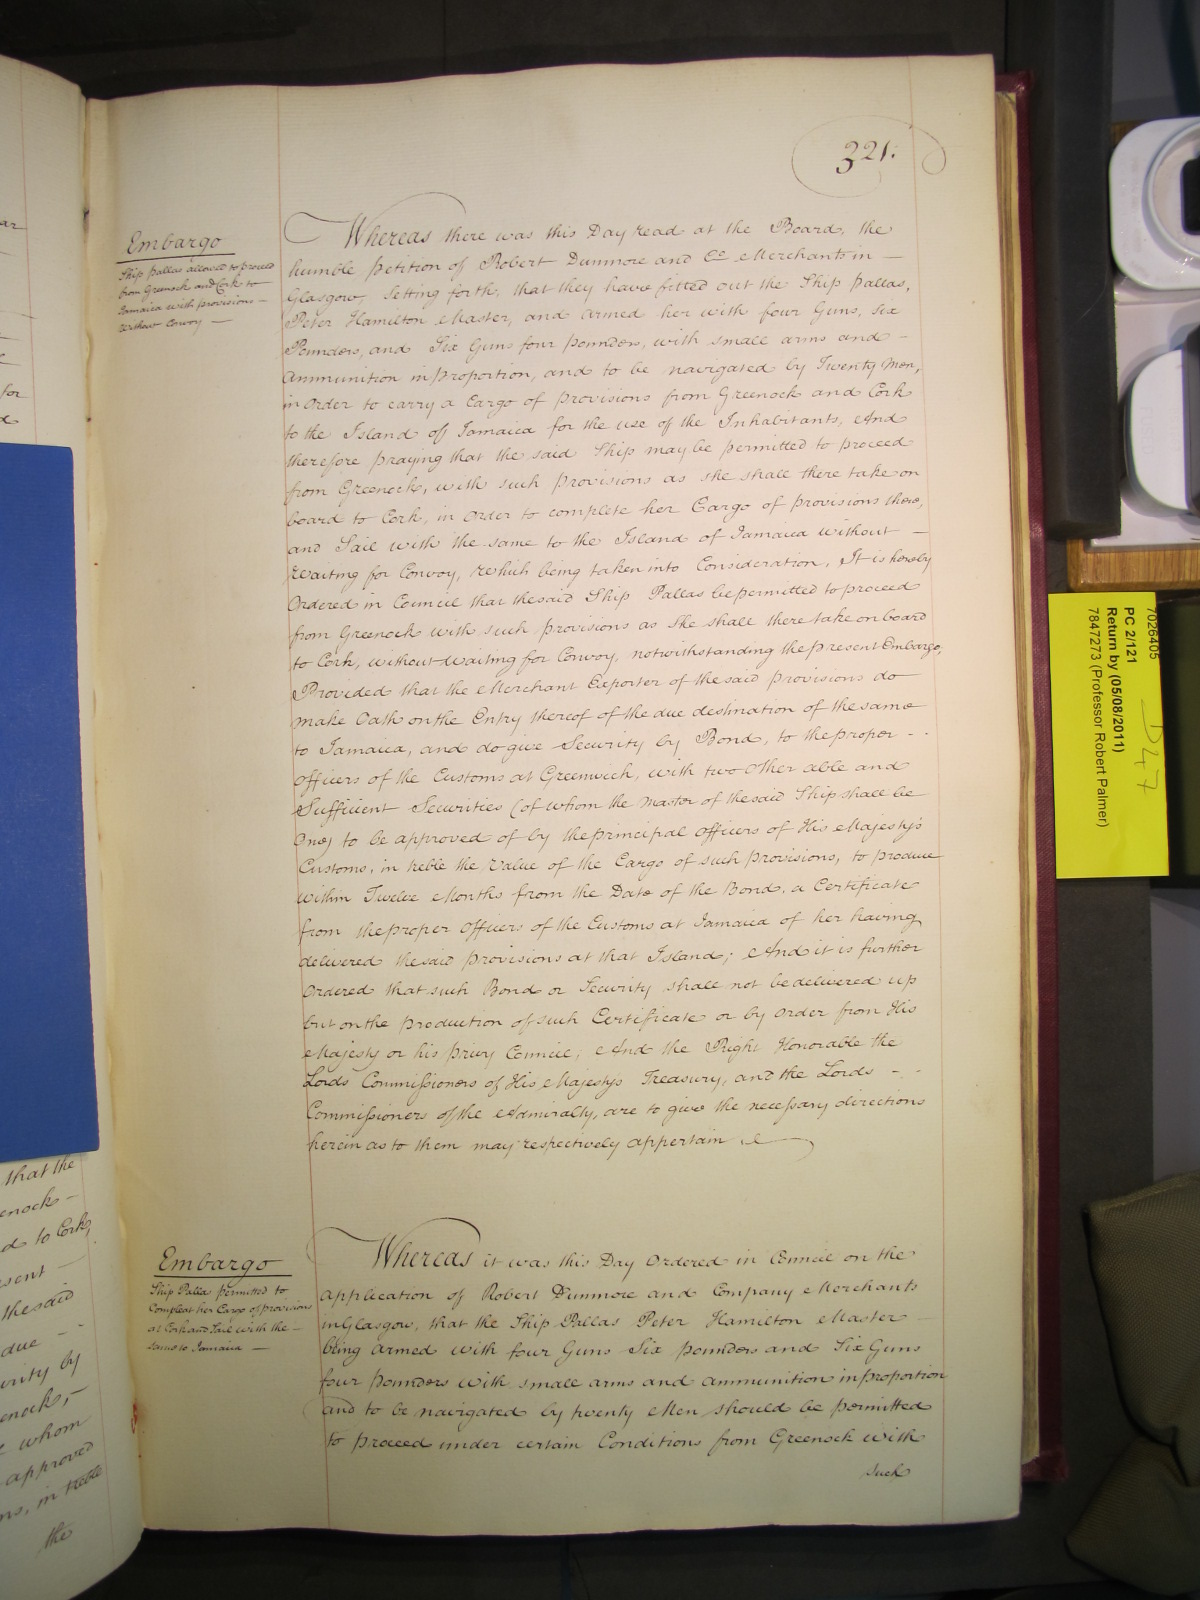 321.
Embargo
Ship Pallas allowed to proceed
from Greenock and Cork to
Jamaica with provisions —
without Convoy —
Whereas there was this Day read at the Board, the
humble petition of Robert Dunmore and Co Merchants in —
Glasgow, Setting forth, that they have fitted out the Ship Pallas,
Peter Hamilton Master, and armed her with four Guns, Six
Pounders, and Six Guns four pounders, with small arms and —
Ammunition in proportion, and to be navigated by Twenty Men,
in Order to carry a Cargo of Provisions from Greenock and Cork
to the Island of Jamaica for the use of the Inhabitants, And
therefore praying that the said Ship may be permitted to proceed
from Greenock, with such Provisions as she shall there take on
board to Cork, in Order to complete her Cargo of Provisions there,
and Sail with the same to the Island of Jamaica without —
waiting for Convoy, which being taken into Consideration, It is hereby
Ordered in Council that the said Ship Pallas be permitted to proceed
from Greenock with such provisions as she shall there take on board
to Cork, without waiting for Convoy, notwithstanding the present Embargo,
Provided that the Merchant Exporter of the said provisions do
make Oath on the Entry thereof of the due destination of the same
to Jamaica, and do give Security by Bond, to the proper - -
Officers of the Customs at Greenwich, with two Other able and
Sufficient Securities (of whom the Master of the said Ship shall be
One) to be approved of by the principal Officers of His Majesty's
Customs, in treble the Value of the Cargo of such provisions, to produce
within Twelve Months from the Date of the Bond, a Certificate
from the proper Officers of the Customs at Jamaica of her having
delivered the said provisions at that Island; And it is further
Ordered that such Bond or Security shall not be delivered up
but on the production of such Certificate or by Order from His
Majesty or his privy Council; And the Right Honorable the
Lords Commissioners of His Majestys Treasury, and the Lords - -
Commissioners of the Admiralty, are to give the necessary directions
herein as to them may respectively appertain
Embargo
Ship Pallas permitted to
Compleat her Cargo of provisions
at Cork and Sail with the —
same to Jamaica —
Whereas it was this Day Ordered in Council on the
application of Robert Dunmore and Company Merchants
in Glasgow, that the Ship Pallas Peter Hamilton Master —
being armed with four Guns Six pounders and Six Guns
four pounders with small arms and ammunition in proportion
and to be navigated by twenty Men should be permitted
to proceed under certain Conditions from Greenock with
such
for
that the
enock —
d to Cork,
esent —
the said
due —
urity by
enock,
whom
approved
ms, in treble
the
7026405
PC 2/121
Return by (05/08/2011)
7847273 (Professor Robert Palmer)
D47